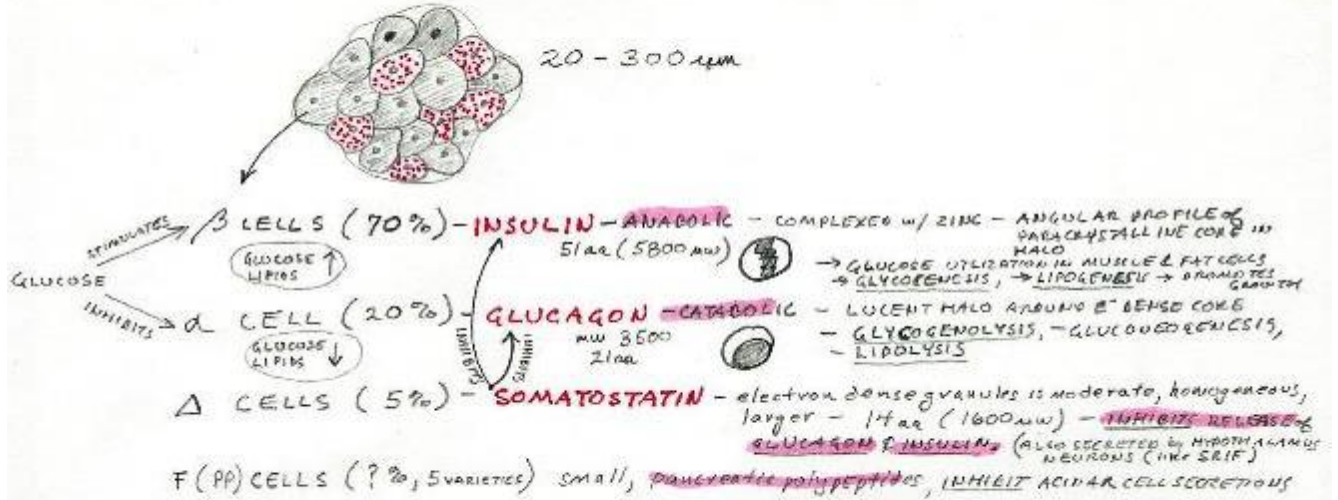 20 - 300 μm
STIMULATES
β CELLS (70%) - INSULIN - ANABOLIC - COMPLEXED w/ ZINC - ANGULAR PROFILE of
PARACRYSTALLINE CORE IN
HALO
GLUCOSE LIPIDS ↑
51aa (5800 mw)
→ GLUCOSE UTILIZATION IN MUSCLE & FAT CELLS
→ GLYCOGENESIS, → LIPOGENESIS → PROMOTES
GROWTH
GLUCOSE
INHIBITS
α CELL (20%) - GLUCAGON - CATABOLIC - LUCENT HALO AROUND E⁻ DENSE CORE
GLUCOSE LIPIDS ↓
mw 3500
21aa
- GLYCOGENOLYSIS, - GLUCONEOGENESIS,
- LIPOLYSIS
INHIBITS
INHIBITS
Δ CELLS (5%) - SOMATOSTATIN - electron dense granules is moderate, homogeneous,
larger - 14aa (1600mw) - INHIBITS RELEASE of
GLUCAGON & INSULIN. (ALSO SECRETED by HYPOTHALAMUS
NEURONS (like SRIF)
F (PP) CELLS (?%, 5 VARIETIES) small, pancreatic polypeptides, INHIBIT ACINAR CELL SECRETIONS